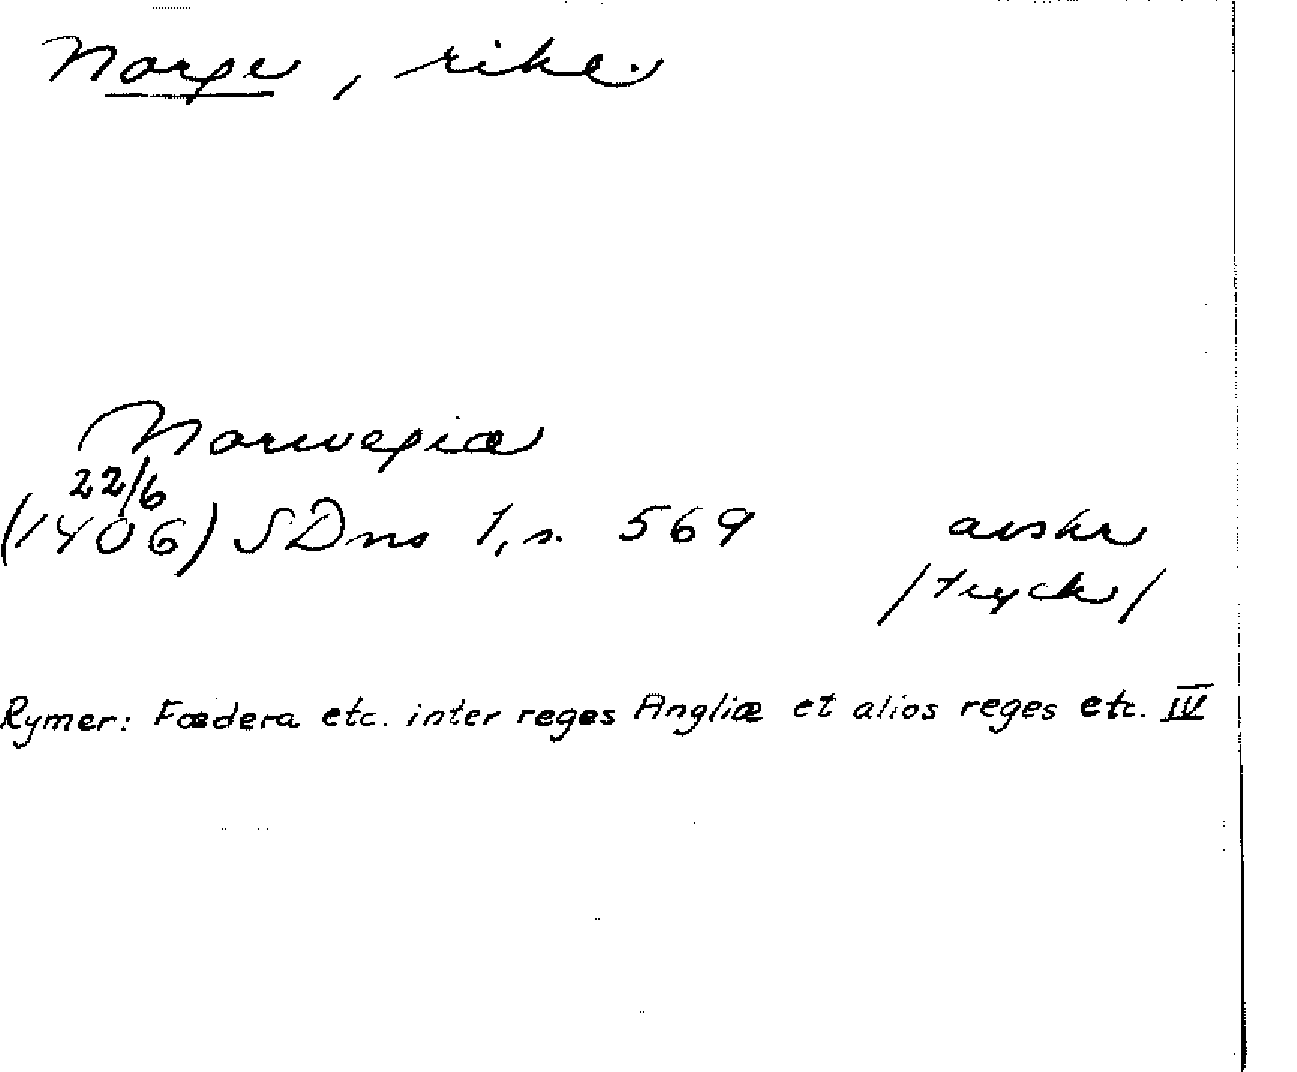 Norge, rike.
Norwegiæ
22/6
(1406) SDns 1, s. 569 avskr
/tryck/
Rymer: Fædera etc. inter reges Angliæ et alios reges etc. IV